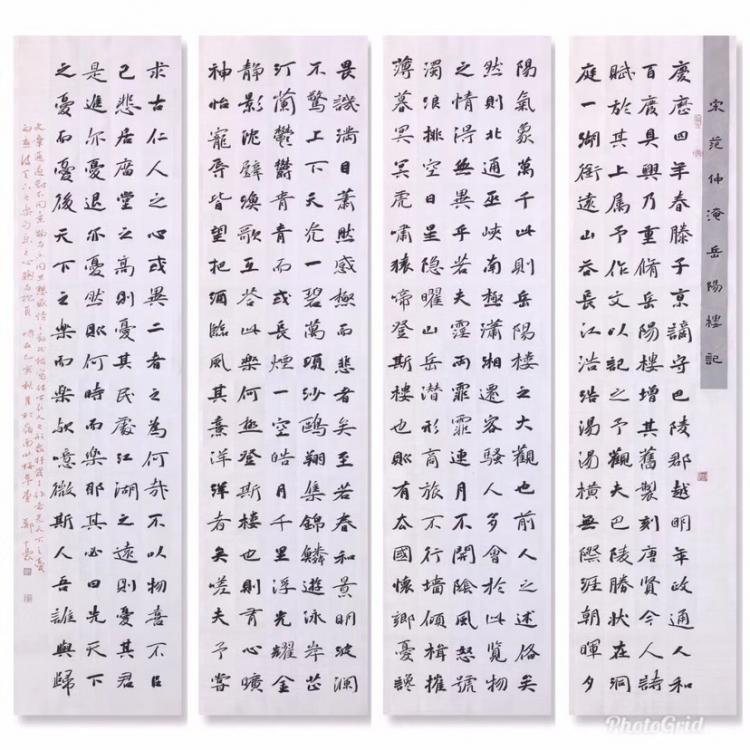 宋范仲淹岳陽樓記
慶歷四年春滕子京謫守巴陵郡越明年政通人和
百廢具興乃重脩岳陽樓增其舊製刻唐賢今人詩
賦於其上属予作文以記之予觀夫巴陵勝狀在洞
庭一湖銜遠山吞長江浩浩湯湯橫無際涯朝暉夕
陽氣象萬千此則岳陽樓之大觀也前人之述俻矣
然則北通巫峽南極瀟湘遷客騷人多會於此覧物
之情得無異乎若夫霪雨霏霏連月不開陰風怒號
濁浪排空日星隐曜山岳潜形商旅不行墙傾楫摧
薄暮冥冥虎嘯猿啼登斯樓也則有去國懷鄉憂讒
畏譏满目蕭然感極而悲者矣至若春和景明波瀾
不驚上下天光一碧萬頃沙鷗翔集錦鱗遊泳岸芷
汀蘭鬱鬱青青而或長煙一空皓月千里浮光耀金
静影沈璧漁歌互荅此樂何極登斯樓也則有心曠
神怡寵辱皆望把酒臨風其喜洋洋者矣嗟夫予嘗
求古仁人之心或異二者之為何哉不以物喜不以
己悲居廟堂之高則憂其民處江湖之遠則憂其君
是進亦憂退亦憂然則何時而樂耶其必曰先天下
之憂而憂後天下之樂而樂歟噫微斯人吾誰與歸
PhotoGrid